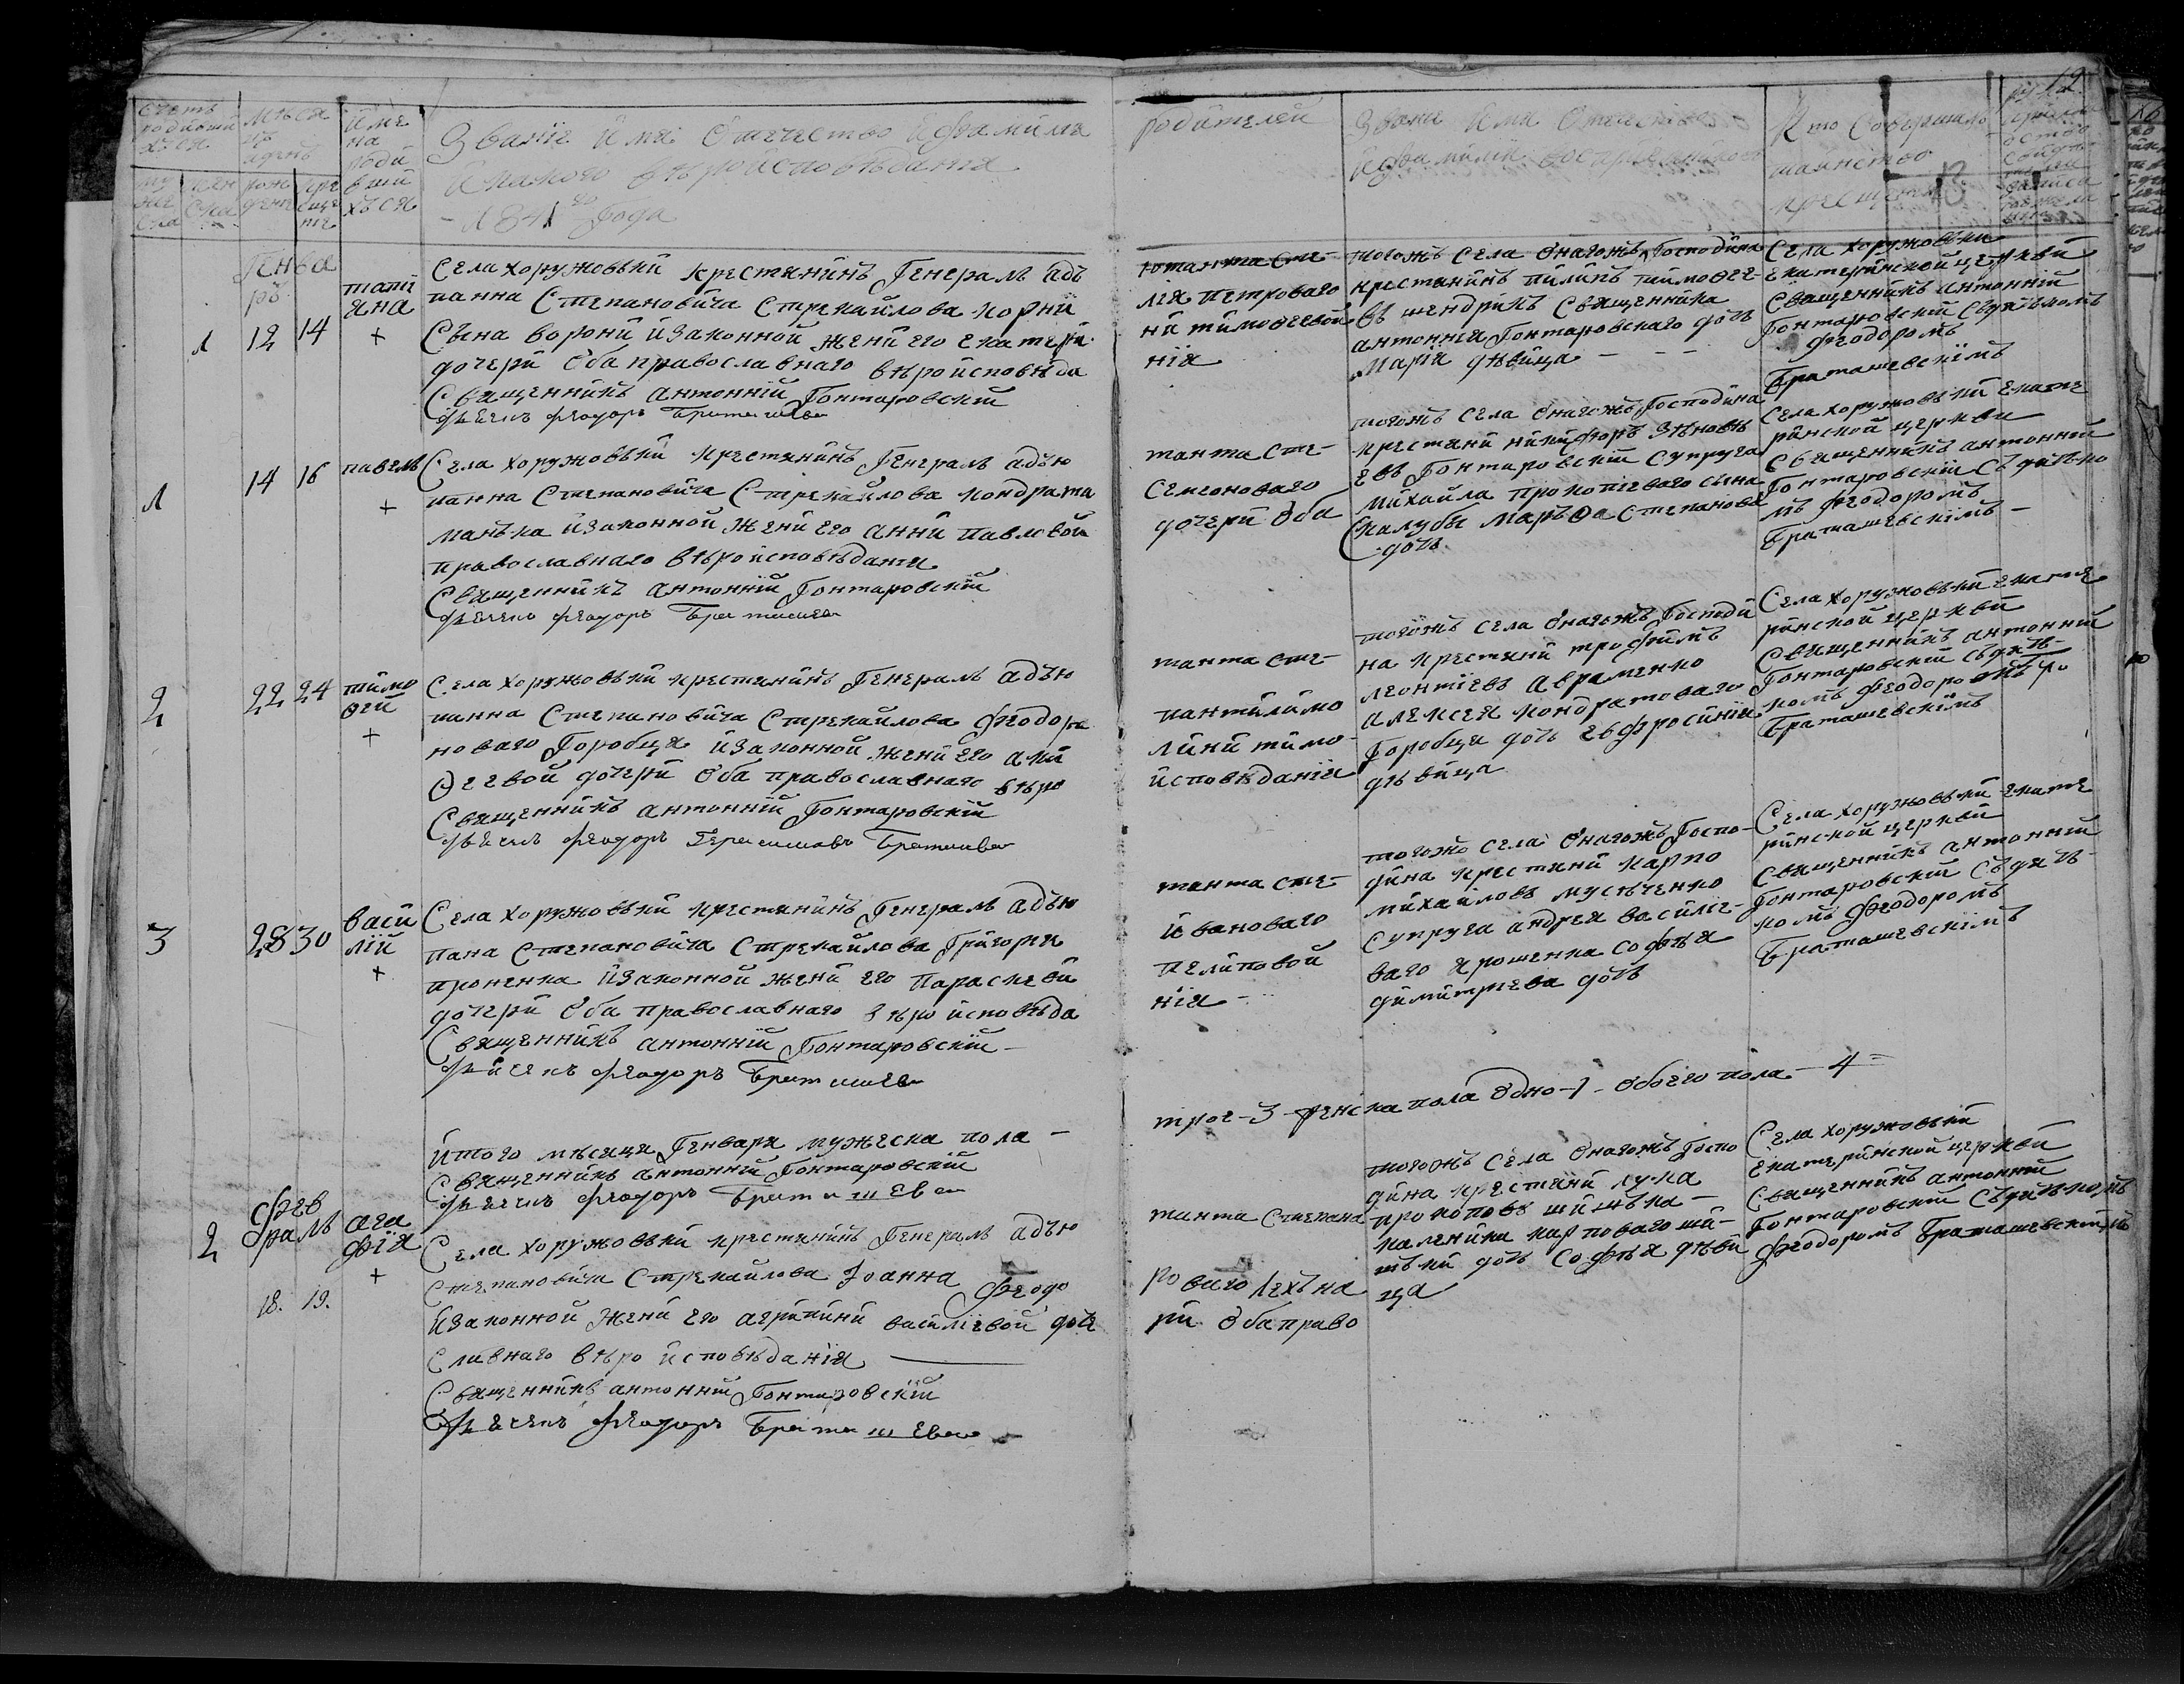 счетъ родившихся
мужеска
женска
Мѣсяцъ и день
рожденія
крещенія
Имена родившихъся
Званіе Имя Отечество и Фамилия
и какого вѣроисповѣдания
1841 Года
родителей
Звание Имя Отечество
и Фамилия воспріемниковъ
Кто Совершалъ
таинство
крещения
12
Генварь
1 12 14
татіяна
+
Села хоружовъки крестянинъ Генералъ адъ
панна Степановича Стрекайлова Корнѝ
Сына ворони изаконной жени его екатери
дочери Оба православнаго вѣроисповѣда
Священникъ антонній Гонтаровскій
дьячекъ Феодоръ Браташев
ютанта сте-
лія петроваго
ни тимофеевой
нія
тогожъ села онагожъ Господина
крестянинъ пилипъ тимофее-
въ шендрикъ Священника
антоннія Гонтаровскаго дочь
Марія дѣвица
Села хоружовъки
екатеринской церкви
Священникъ антонній
Гонтаровскій съ дякъномъ
Феодоромъ
Браташевскімъ
1 14 16
павелъ
+
Села хоружовъки крестянинъ Генералъ адъю
панна Степановича Стрекайлова кондрата
манька изаконной жени его анни павловой
православнаго вѣроисповѣдания
Священникъ антонній Гонтаровскій
дьячекъ Феодоръ Браташев
танта сте-
семеоноваго
дочери Оба
тогожъ села онагожъ Господина
крестяни никифоръ Зѣновъ
евъ Гонтаровскій супруга
михайла прокопіеваго сына
Скалубы Марѳа Степанова
дочь
Села хоружовъки екате
ринской церкви
Священникъ антонній
Гонтаровскій съ дяко
мъ Феодоромъ
Браташевскімъ
2 22 24
тимоѳей
+
Села хоружовъки крестянинъ Генералъ адъю
панна Степановича Стрекайлова Феодора
новаго Горобця изаконной жени его аки
Ѳеевой дочери Оба православнаго вѣро
Священникъ антонній Гонтаровскій
дьячекъ Феодоръ Герасимовъ Браташев
танта сте-
пантилимо
лини тимо-
исповѣданія
тогожъ села онагожъ Господи
на крестяни трофимъ
леонтіевъ авраменко
алексея кондратоваго
Горобця дочь евфросинія
дѣвица
Села хоружовъки екате
ринской церкви
Священникъ антонній
Гонтаровскій съ дяч-
комъ Феодоромъ
Браташевскімъ
3 28 30
василій
+
Села хоружовъки крестянинъ Генералъ адъю
пана Степановича Стрекайлова Григория
проненка изаконной жени его параскеви
дочери Оба православнаго вѣроисповѣда
Священникъ антонній Гонтаровскій
дьячекъ Феодоръ Браташев
танта сте-
ивановаго
пелиповой
нія
тогожъ села онагожъ Госпо-
дина крестяни карпо
михайловъ мусѣченко
супруга андрея василіе-
ваго ярошенка софія
димитріева дочь
Села хоружовъки екате
ринской церкви
Священникъ антонній
Гонтаровскій съ дяч-
комъ Феодоромъ
Браташевскімъ
Итого мѣсяця Генваря мужеска пола
трое - 3 - женска пола Одно - 1 - обоего пола - 4
Священникъ антонній Гонтаровскій
дьячекъ Феодоръ Браташев
Февралъ
2 18. 19.
агафія
+
Села хоружовъки крестянинъ Генералъ адъю
Степановича Стрекайлова Іоанна Феодо
изаконной жени его агрипини василіевой доче
славнаго вѣроисповѣданія
Священникъ антонній Гонтаровскій
дьячекъ Феодоръ Браташев
танта Степана
роваго лехъна
ри Оба право
тогожъ села онагожъ Госпо
дина крестяни лука
прокоповъ шишъка
каленика карповаго ши-
шъки дочь софія дѣви
ца
Села хоружовъки
екатеринской церкви
Священникъ антонній
Гонтаровскій съ дячкомъ
Феодоромъ Браташевскімъ